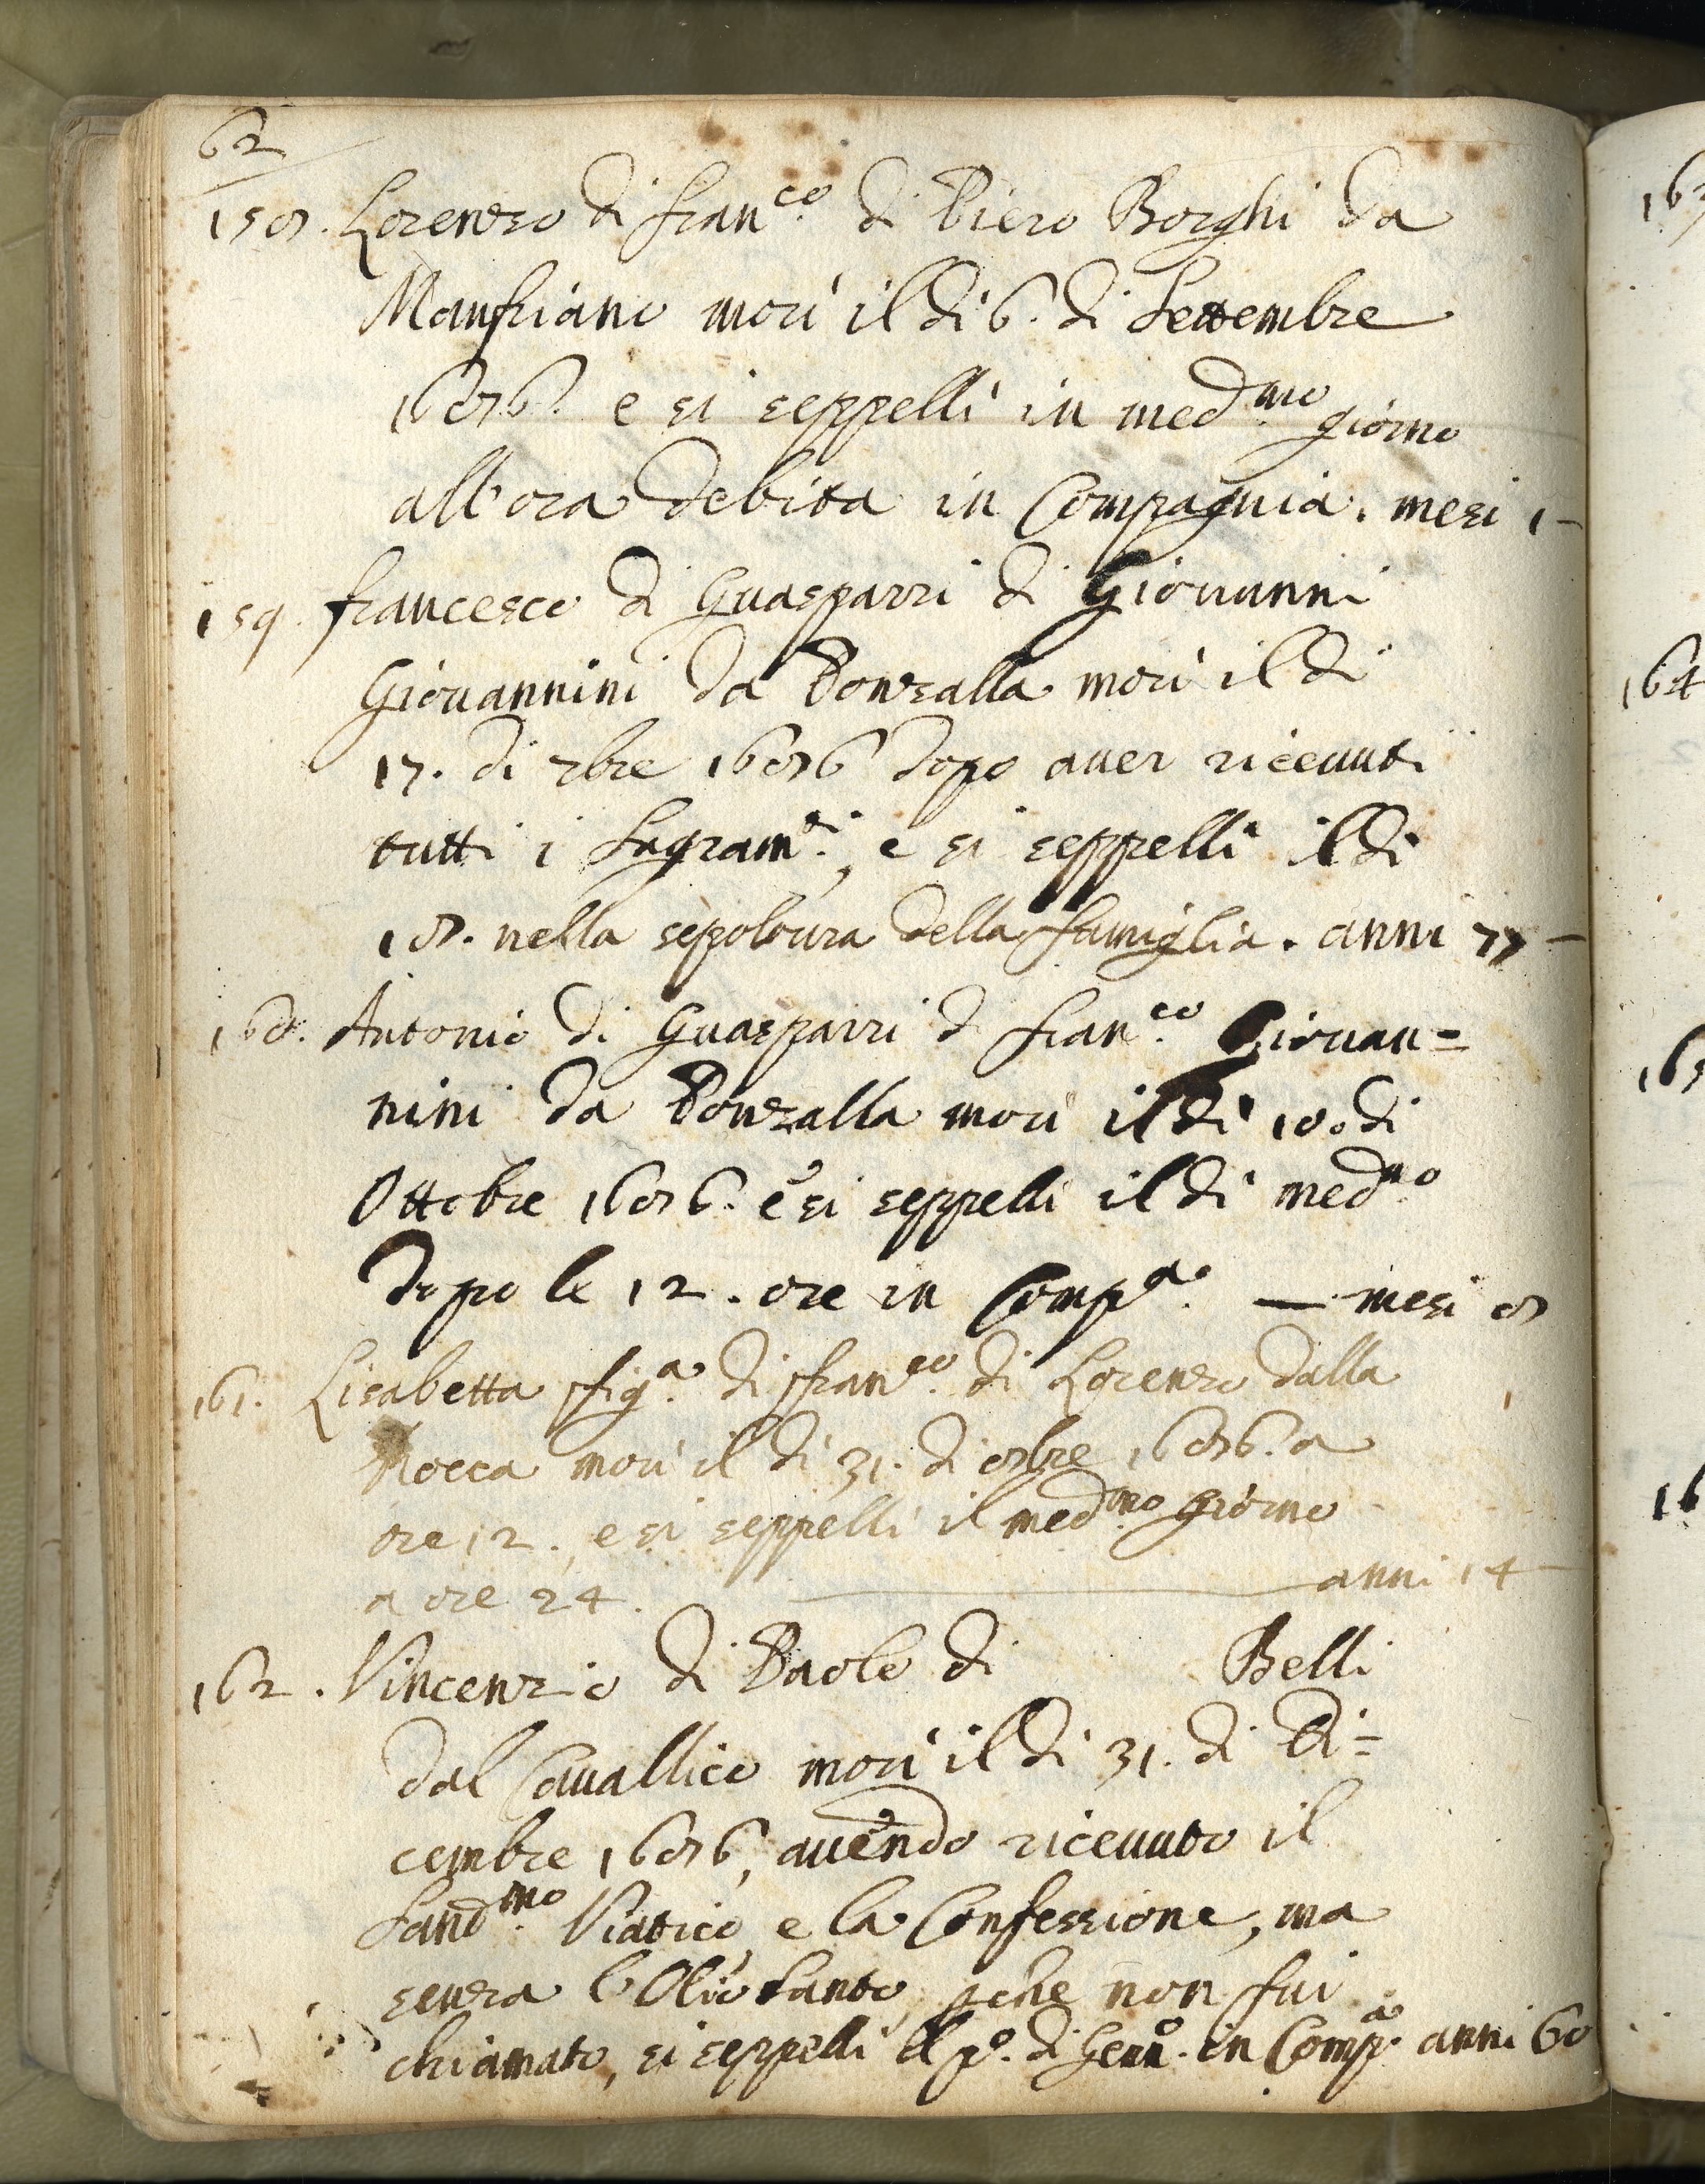 62
158. Lorenzo di Fran.co di Piero Borghi da
Manfriano morì il dì 6. di Settembre
1686. e si seppellì in med.mo giorno
all'ora debita in Compagnia. mesi 1-
159. Francesco di Guasparri di Giovanni
Giovannini da Ponzalla morì il dì
17. di 7bre 1686 dopo aver ricevuti
tutti i Sagram.ti, e si seppellì il dì
18. nella sepoltura della famiglia. anni 77-
160. Antonio di Guasparri di Fran.co Giovan=
nini da Ponzalla morì il dì 10. di
Ottobre 1686. e si seppellì il dì med.mo
dopo le 12. ore in Comp.a — mesi 8
161. Lisabetta fig.a di Fran.co di Lorenzo dalla
Rocca morì il dì 31. di 8bre 1686. a
ore 12. e si seppellì il med.mo giorno
a ore 24. — anni 14
162. Vincenzio di Paolo di Belli
dal Cavallico morì il dì 31. di Di=
cembre 1686, avendo ricevuto il
Sant.mo Viatico e la Confessione, ma
senza l'Olio Santo, pche non fui
chiamato, si seppellì il p.o di Genn.o in Comp.a anni 60
163
164
165
16